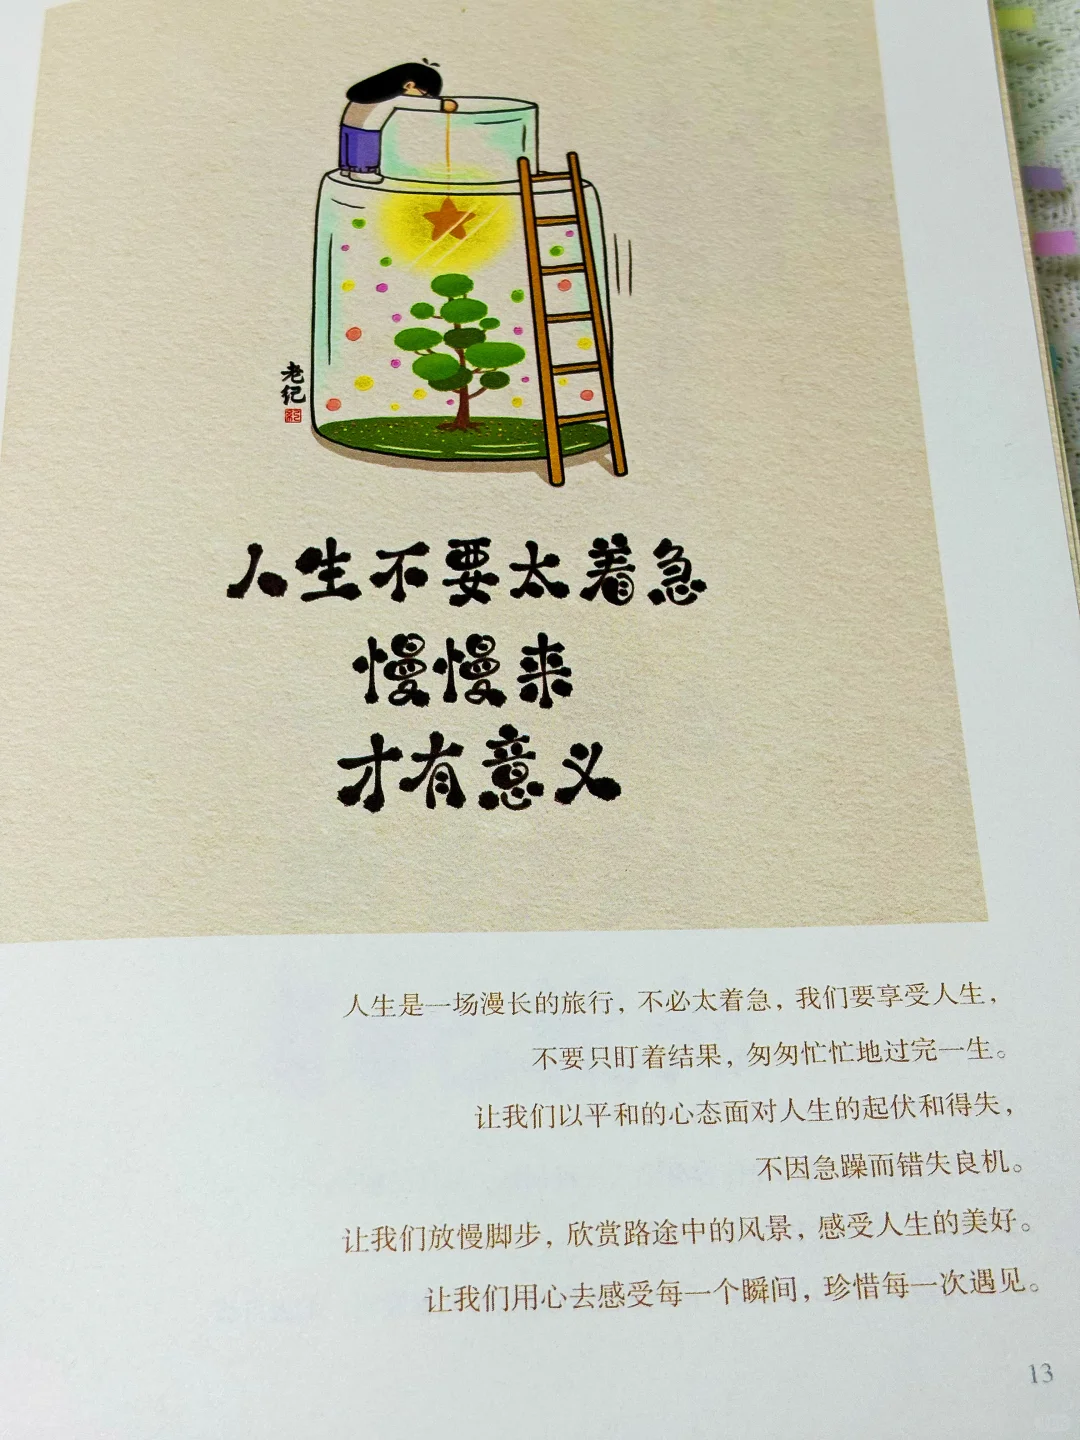 老纪
人生不要太着急
慢慢来
才有意义
人生是一场漫长的旅行，不必太着急，我们要享受人生，
不要只盯着结果，匆匆忙忙地过完一生。
让我们以平和的心态面对人生的起伏和得失，
不因急躁而错失良机。
让我们放慢脚步，欣赏路途中的风景，感受人生的美好。
让我们用心去感受每一个瞬间，珍惜每一次遇见。
13